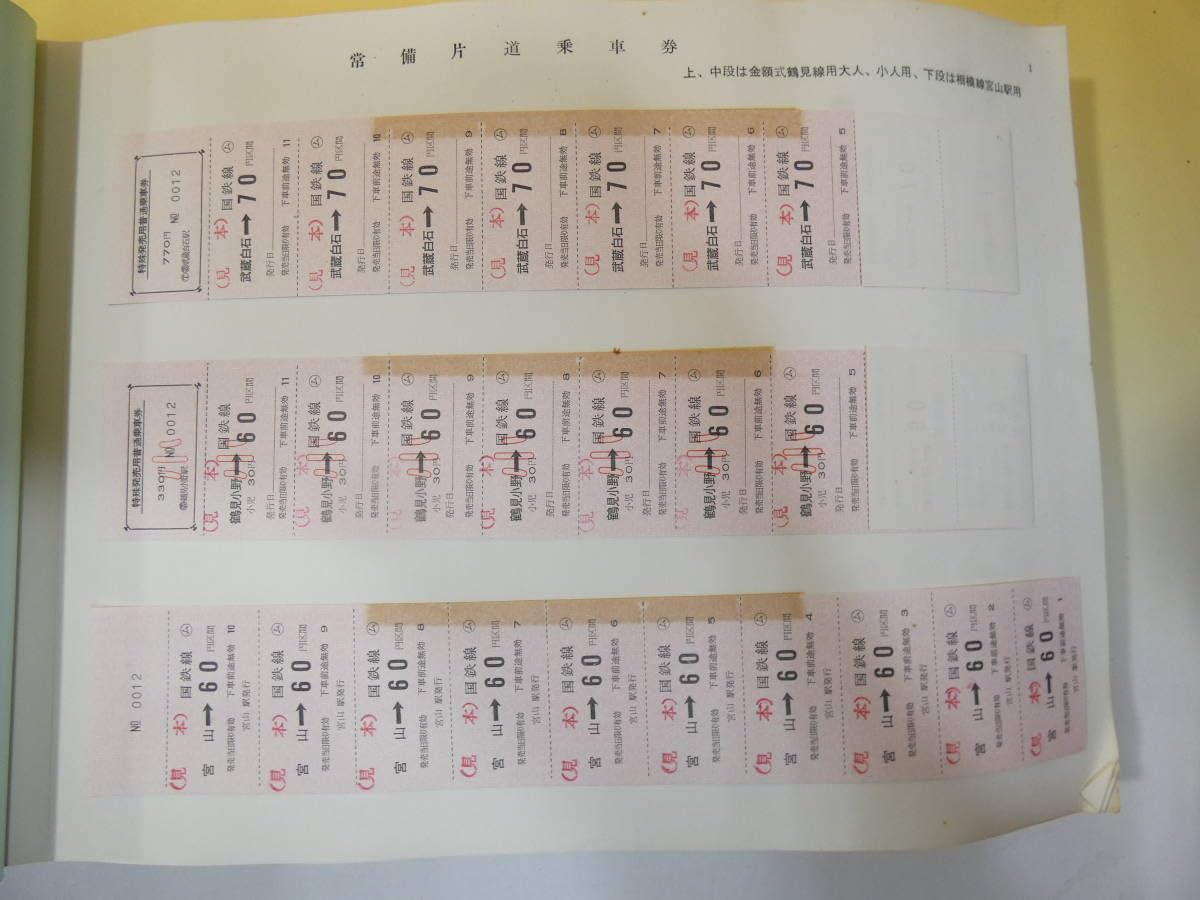 常備片道乗車券
上、中段は金額式鶴見線用大人、小人用、下段は相模線宮山駅用
1
特殊発売用普通乗車券
770円 № 0012
(見本) 国鉄線 ㋰
武蔵白石→70円区間
発行日
発売当日限り有効 下車前途無効 11
(見本) 国鉄線 ㋰
武蔵白石→70円区間
発行日
発売当日限り有効 下車前途無効 10
(見本) 国鉄線 ㋰
武蔵白石→70円区間
発行日
発売当日限り有効 下車前途無効 9
(見本) 国鉄線 ㋰
武蔵白石→70円区間
発行日
発売当日限り有効 下車前途無効 8
(見本) 国鉄線 ㋰
武蔵白石→70円区間
発行日
発売当日限り有効 下車前途無効 7
(見本) 国鉄線 ㋰
武蔵白石→70円区間
発行日
発売当日限り有効 下車前途無効 6
(見本) 国鉄線 ㋰
武蔵白石→70円区間
発行日
発売当日限り有効 下車前途無効 5
特殊発売用普通乗車券
330円 № 0012
(見本) 国鉄線 ㋰
鶴見小野→60円区間
小児 30円
発行日
発売当日限り有効 下車前途無効 11
(見本) 国鉄線 ㋰
鶴見小野→60円区間
小児 30円
発行日
発売当日限り有効 下車前途無効 10
(見本) 国鉄線 ㋰
鶴見小野→60円区間
小児 30円
発行日
発売当日限り有効 下車前途無効 9
(見本) 国鉄線 ㋰
鶴見小野→60円区間
小児 30円
発行日
発売当日限り有効 下車前途無効 8
(見本) 国鉄線 ㋰
鶴見小野→60円区間
小児 30円
発行日
発売当日限り有効 下車前途無効 7
(見本) 国鉄線 ㋰
鶴見小野→60円区間
小児 30円
発行日
発売当日限り有効 下車前途無効 6
(見本) 国鉄線 ㋰
鶴見小野→60円区間
小児 30円
発行日
発売当日限り有効 下車前途無効 5
№ 0012
(見本) 国鉄線 ㋰
宮山→60円区間
発売当日限り有効 下車前途無効 10
宮山駅発行
(見本) 国鉄線 ㋰
宮山→60円区間
発売当日限り有効 下車前途無効 9
宮山駅発行
(見本) 国鉄線 ㋰
宮山→60円区間
発売当日限り有効 下車前途無効 8
宮山駅発行
(見本) 国鉄線 ㋰
宮山→60円区間
発売当日限り有効 下車前途無効 7
宮山駅発行
(見本) 国鉄線 ㋰
宮山→60円区間
発売当日限り有効 下車前途無効 6
宮山駅発行
(見本) 国鉄線 ㋰
宮山→60円区間
発売当日限り有効 下車前途無効 5
宮山駅発行
(見本) 国鉄線 ㋰
宮山→60円区間
発売当日限り有効 下車前途無効 4
宮山駅発行
(見本) 国鉄線 ㋰
宮山→60円区間
発売当日限り有効 下車前途無効 3
宮山駅発行
(見本) 国鉄線 ㋰
宮山→60円区間
発売当日限り有効 下車前途無効 2
宮山駅発行
(見本) 国鉄線 ㋰
宮山→60円区間
発売当日限り有効 下車前途無効 1
宮山駅発行